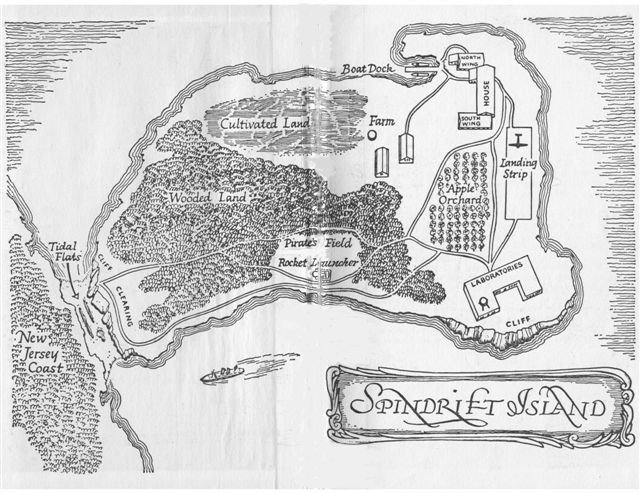 Boat Dock
NORTH
WING
HOUSE
SOUTH
WING
Cultivated Land
Farm
Landing
Strip
Wooded Land
Apple
Orchard
Pirate's Field
Rocket Launcher
Tidal
Flats
CLIFF
CLEARING
LABORATORIES
CLIFF
New
Jersey
Coast
SPINDRIFT ISLAND